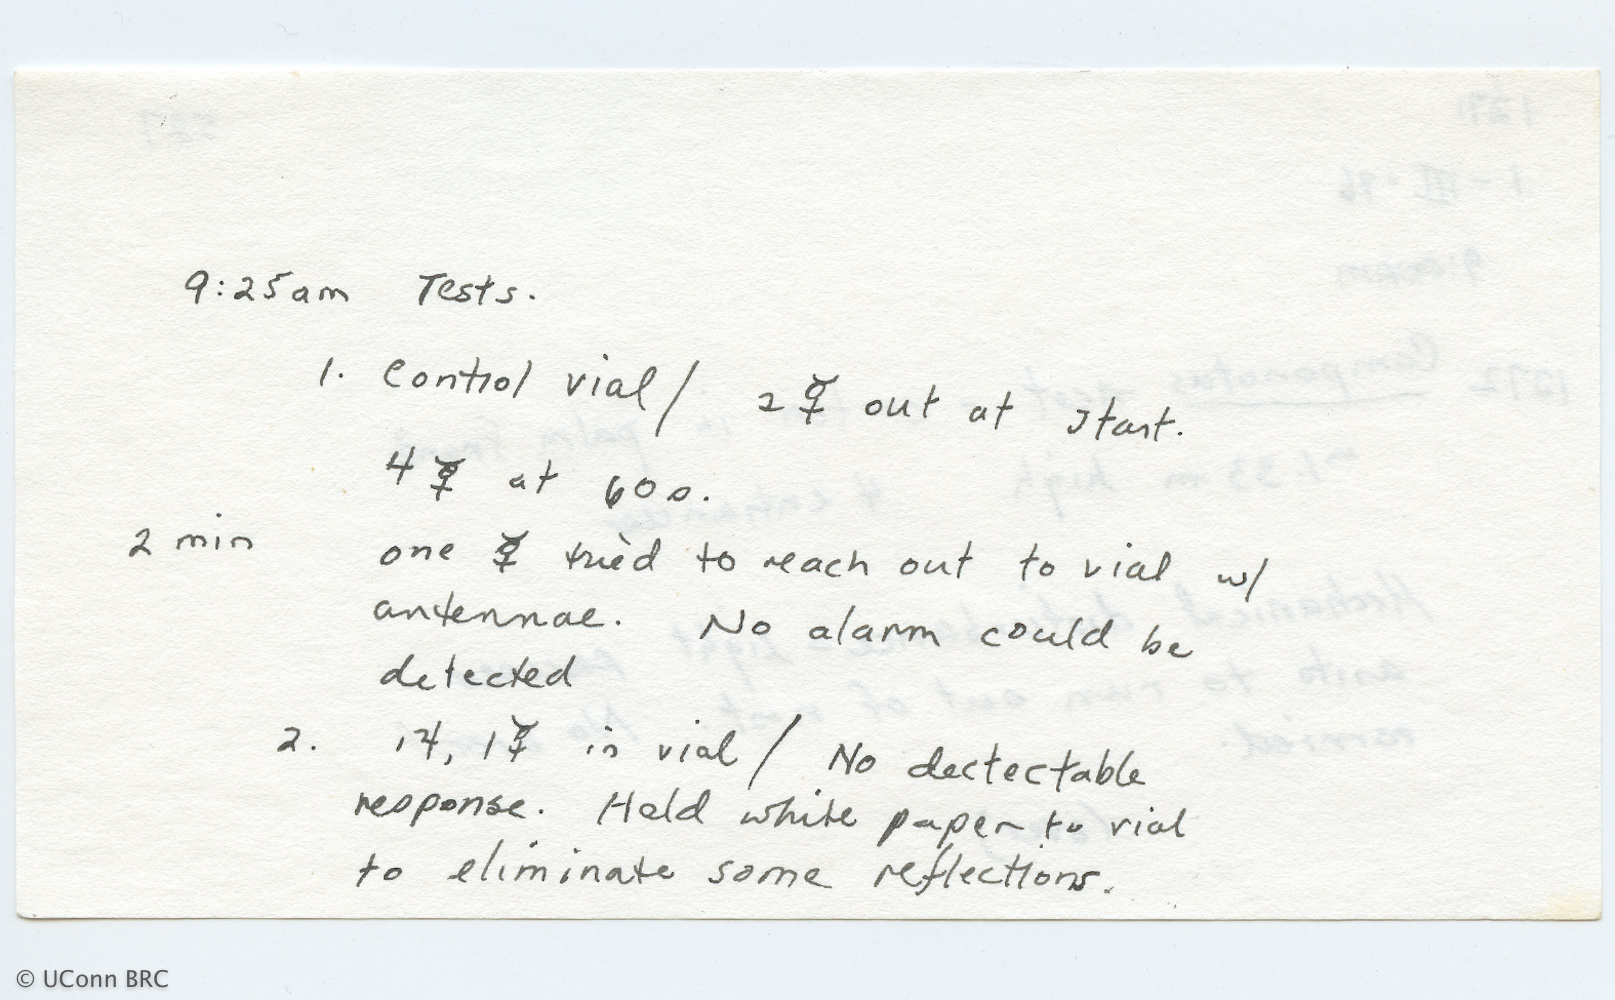 9:25am Tests.
1. Control vial / 2 ☿ out at start.
4 ☿ at 60 s.
2 min one ☿ tried to reach out to vial w/
antennae. No alarm could be
detected
2. 1♃, 1☿ in vial / No dectectable
response. Held white paper to vial
to eliminate some reflections.
© UConn BRC